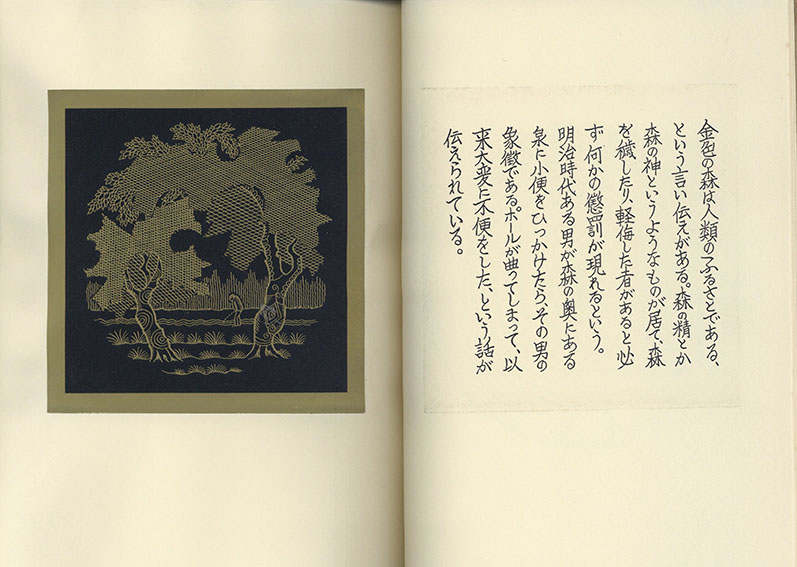 金色の森は人類のふるさとである、
という言い伝えがある。森の精とか
森の神というようなものが居て、森
を穢したり、軽侮した者があると必
ず何かの懲罰が現れるという。
明治時代ある男が森の奥にある
泉に小便をひっかけたら、その男の
象徴であるポールが曲ってしまって、以
来大変に不便をした、という話が
伝えられている。